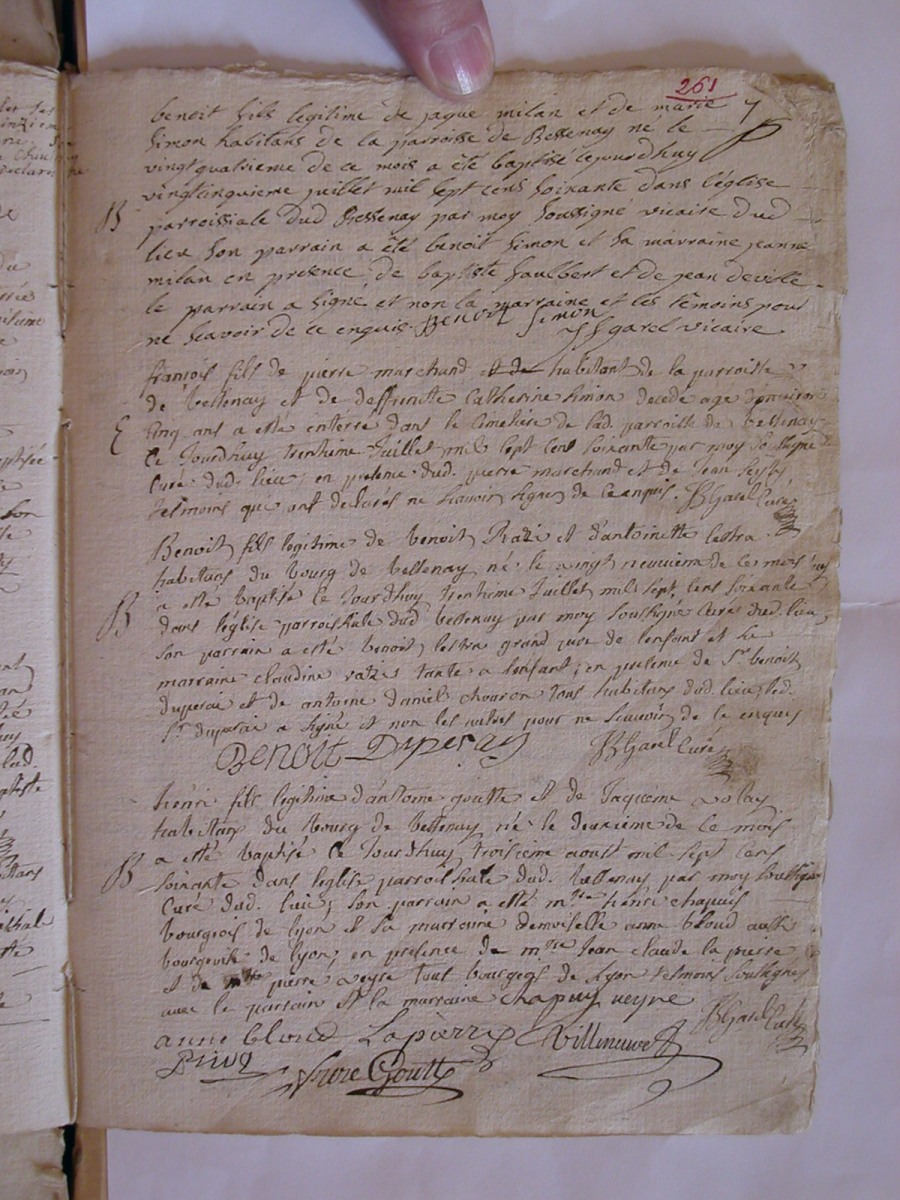 261
benoit fils legitime de jaque milan et de marie
simon habitans de la parroisse de Bessenay né le
vingtquatrieme de ce mois a été baptisé cejourdhuy
vingtcinquieme juillet mil sept cens soixante dans l'église
B parroissiale dud Bessenay par moy soussigné vicaire dud
lieu son parrain a été benoit simon et sa marraine jeanne
milan en presence de baptiste gaulbert et de jean deville
le parrain a signé et non la marraine et les témoins pour
ne scavoir de ce enquis. Benoit simon
garel vicaire
françois fils de pierre marchand et de habitant de la parroisse
de bessenay et de deffuncte Catherine simon decede age denviron
E cinq ans a esté enterré dans le cimetiere de lad. parroisse de bessenay
ce jourdhuy trentieme juillet mil sept cent soixante par moy soussigné
curé dud. lieu, en presence dud. pierre marchand et de jean
tesmoins qui ont declarés ne scavoir signer de ce enquis. Garel Curé
Benoit fils legitime de benoit Razi et d'antoinette lestra
habitans du bourg de bessenay né le vingt neuvieme de ce mois
B a esté baptisé ce jourdhuy trentieme juillet mil sept cent soixante
dans l'église parroissiale dud bessenay par moy soussigné curé dud. lieu
son parrain a esté benoit lestra grand pere de lenfant et sa
marraine claudine razi tante a lenfant, en presence de sr. benoit
duperai et de antoine daniel charon tous habitans dud. lieu, led.
sr. duperai a signé et non les autres pour ne scavoir de ce enquis
BENOIT Duperay Garel Curé
henri fils legitime d'antoine goutte et de jaqueme volay
habitans du bourg de bessenay né le deuxieme de ce mois
B a esté baptisé ce jourdhuy troisieme aoust mil sept cens
soixante dans leglise parroissiale dud. bessenay par moy soussigné
curé dud. lieu, son parrain a esté mre henri chapuis
bourgeois de lyon et sa marraine demoiselle anne bloud aussi
bourgeoise de lyon, en presence de mre Jean claude la pierre
et de pierre veyre tout bourgeois de lyon tesmoins soussignés
avec le parrain et la marraine chapuy veyne
anne bloud Lapierre Villeneuve Garel Curé
Goutte